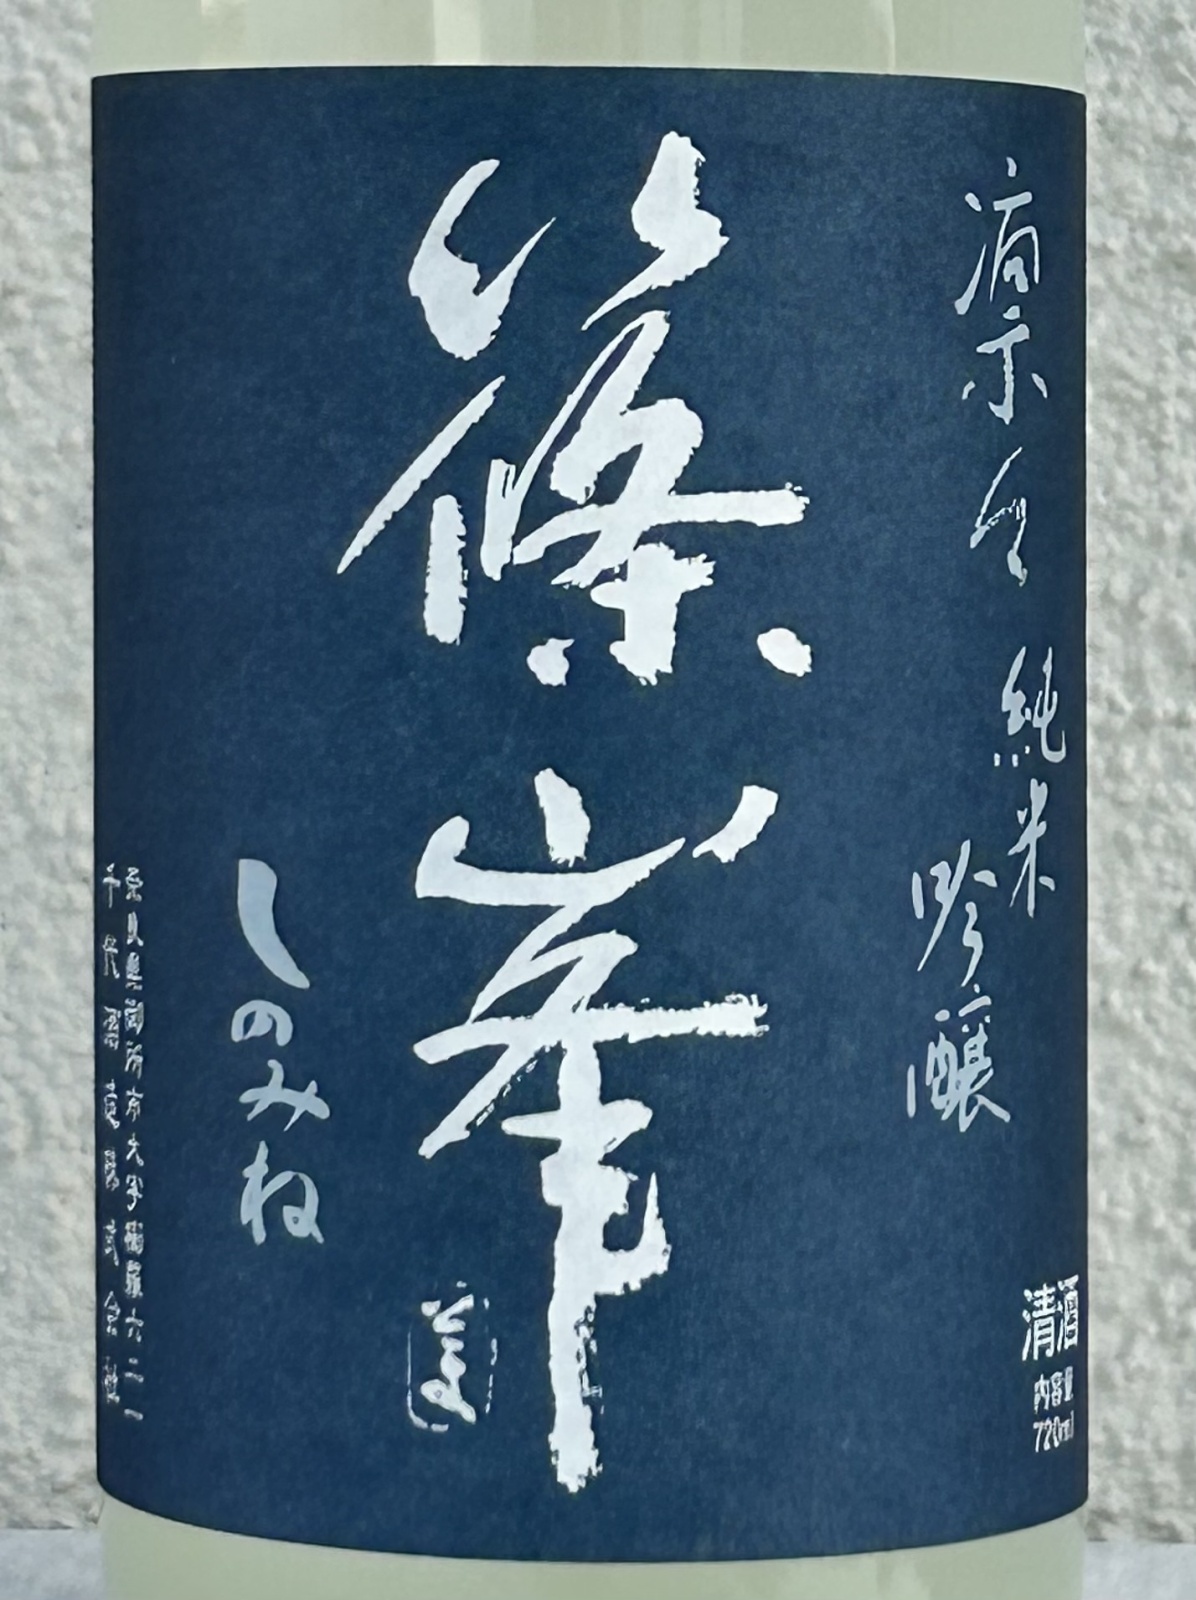 凛々
純米
吟醸
篠峯
しのみね
奈良県御所市大字櫛羅六二一
千代酒造株式会社
清酒
内容量
720ml